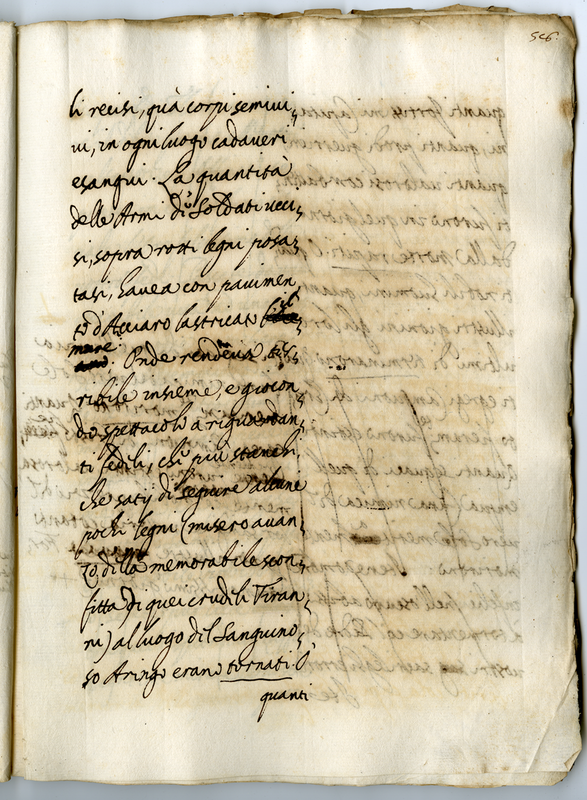 566.
li recisi, quà corpi semivi,
vi, in ogni luogo cadaveri
esangui. La quantità
delle Armi di Soldati ucci,
si, sopra rotti legni posa,
tasi, havea con pavimen,
to d'Acciaro lastricato il
mare. Onde rendeva ter,
ribile insieme, e giocon,
do spettacolo a riguardan,
ti fedeli, che più stanchi,
che satij di seguire alcune
pochi legni (misero avan,
zo della memorabile scon,
fitta di quei crudeli Tiran,
ni) al luogo del Sanguino,
so Aringo erano tornati. O'
quanti